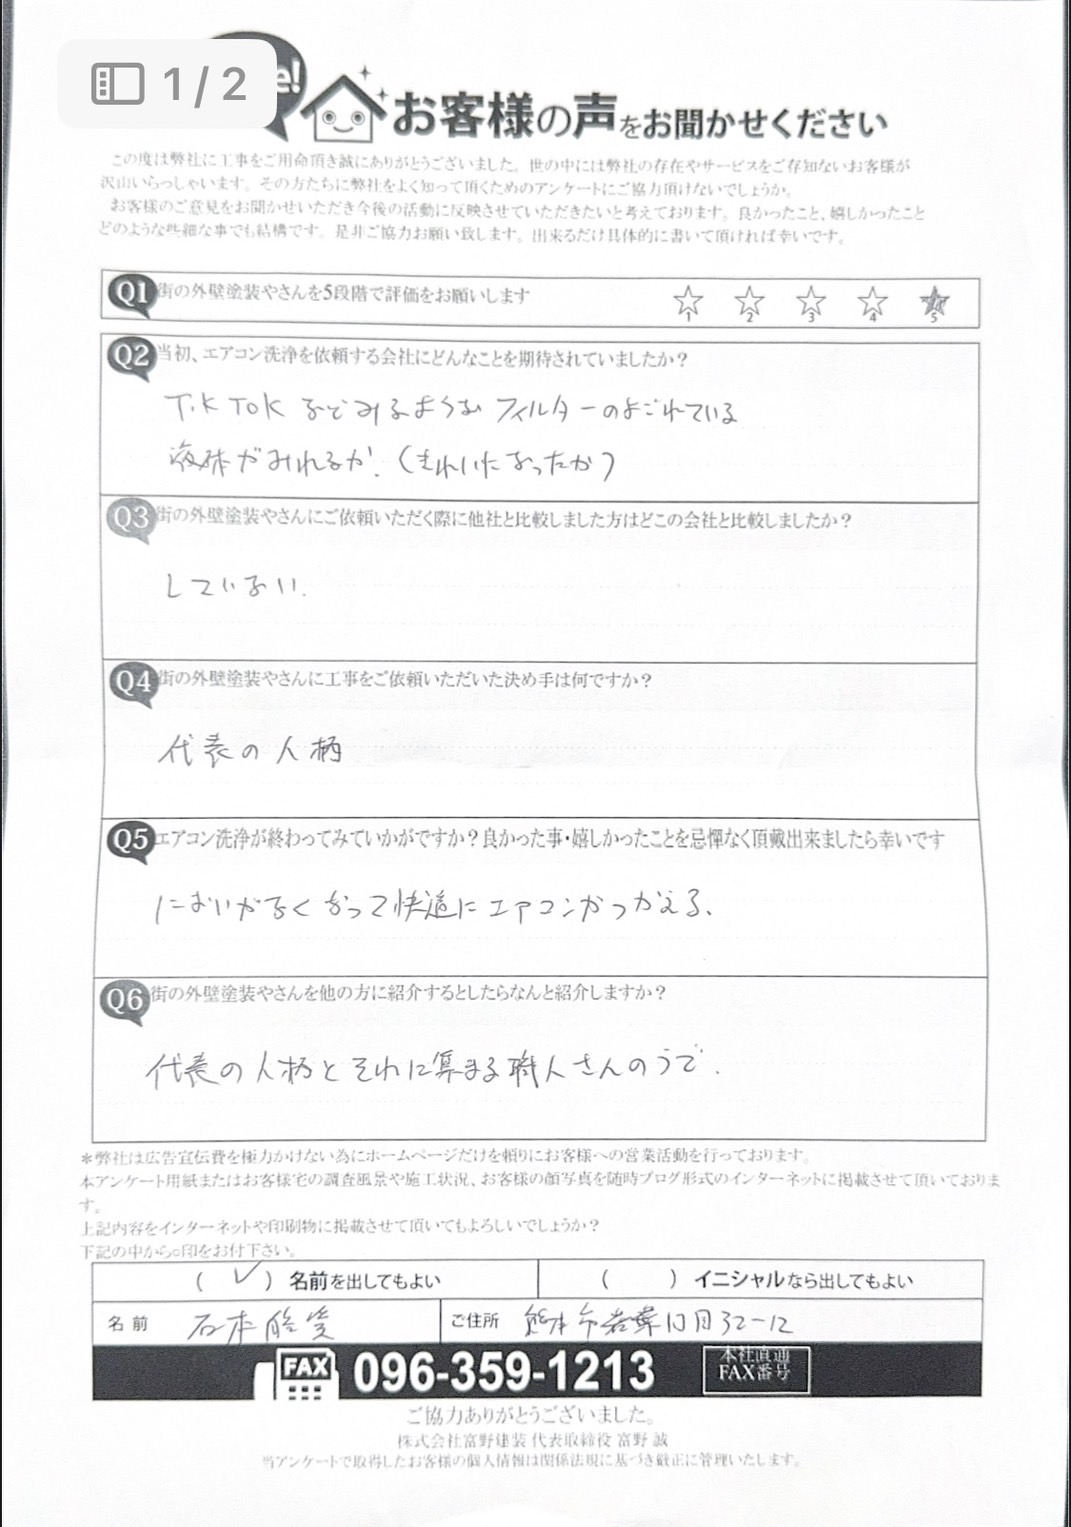 1/2
e!
お客様の声をお聞かせください
この度は弊社に工事をご用命頂き誠にありがとうございました。世の中には弊社の存在やサービスをご存知ないお客様が
沢山いらっしゃいます。その方たちに弊社をよく知って頂くためのアンケートにご協力頂けないでしょうか。
お客様のご意見をお聞かせいただき今後の活動に反映させていただきたいと考えております。良かったこと、嬉しかったこと
どのような些細な事でも結構です。是非ご協力お願い致します。出来るだけ具体的に書いて頂ければ幸いです。
Q1 街の外壁塗装やさんを5段階で評価をお願いします
1 2 3 4 5
Q2 当初、エアコン洗浄を依頼する会社にどんなことを期待されていましたか?
TikTokなどでみるような フィルターのよごれている
液体がみれるか。(きれいになったか)
Q3 街の外壁塗装やさんにご依頼いただく際に他社と比較しました方はどこの会社と比較しましたか?
していない。
Q4 街の外壁塗装やさんに工事をご依頼いただいた決め手は何ですか?
代表の人柄
Q5 エアコン洗浄が終わってみていかがですか?良かった事・嬉しかったことを忌憚なく頂戴出来ましたら幸いです
においがなくなって快適にエアコンがつかえる。
Q6 街の外壁塗装やさんを他の方に紹介するとしたらなんと紹介しますか?
代表の人柄とそれに集まる職人さんのうで。
*弊社は広告宣伝費を極力かけない為にホームページだけを頼りにお客様への営業活動を行っております。
本アンケート用紙またはお客様宅の調査風景や施工状況、お客様の顔写真を随時ブログ形式のインターネットに掲載させて頂いておりま
す。
上記内容をインターネットや印刷物に掲載させて頂いてもよろしいでしょうか?
下記の中から○印をお付下さい。
(✓)名前を出してもよい ( )イニシャルなら出してもよい
名前 石本 ご住所 熊本市若葉1丁目32-12
FAX 096-359-1213 本社直通
FAX番号
ご協力ありがとうございました。
株式会社富野建装 代表取締役 富野 誠
当アンケートで取得したお客様の個人情報は関係法規に基づき厳正に管理いたします。